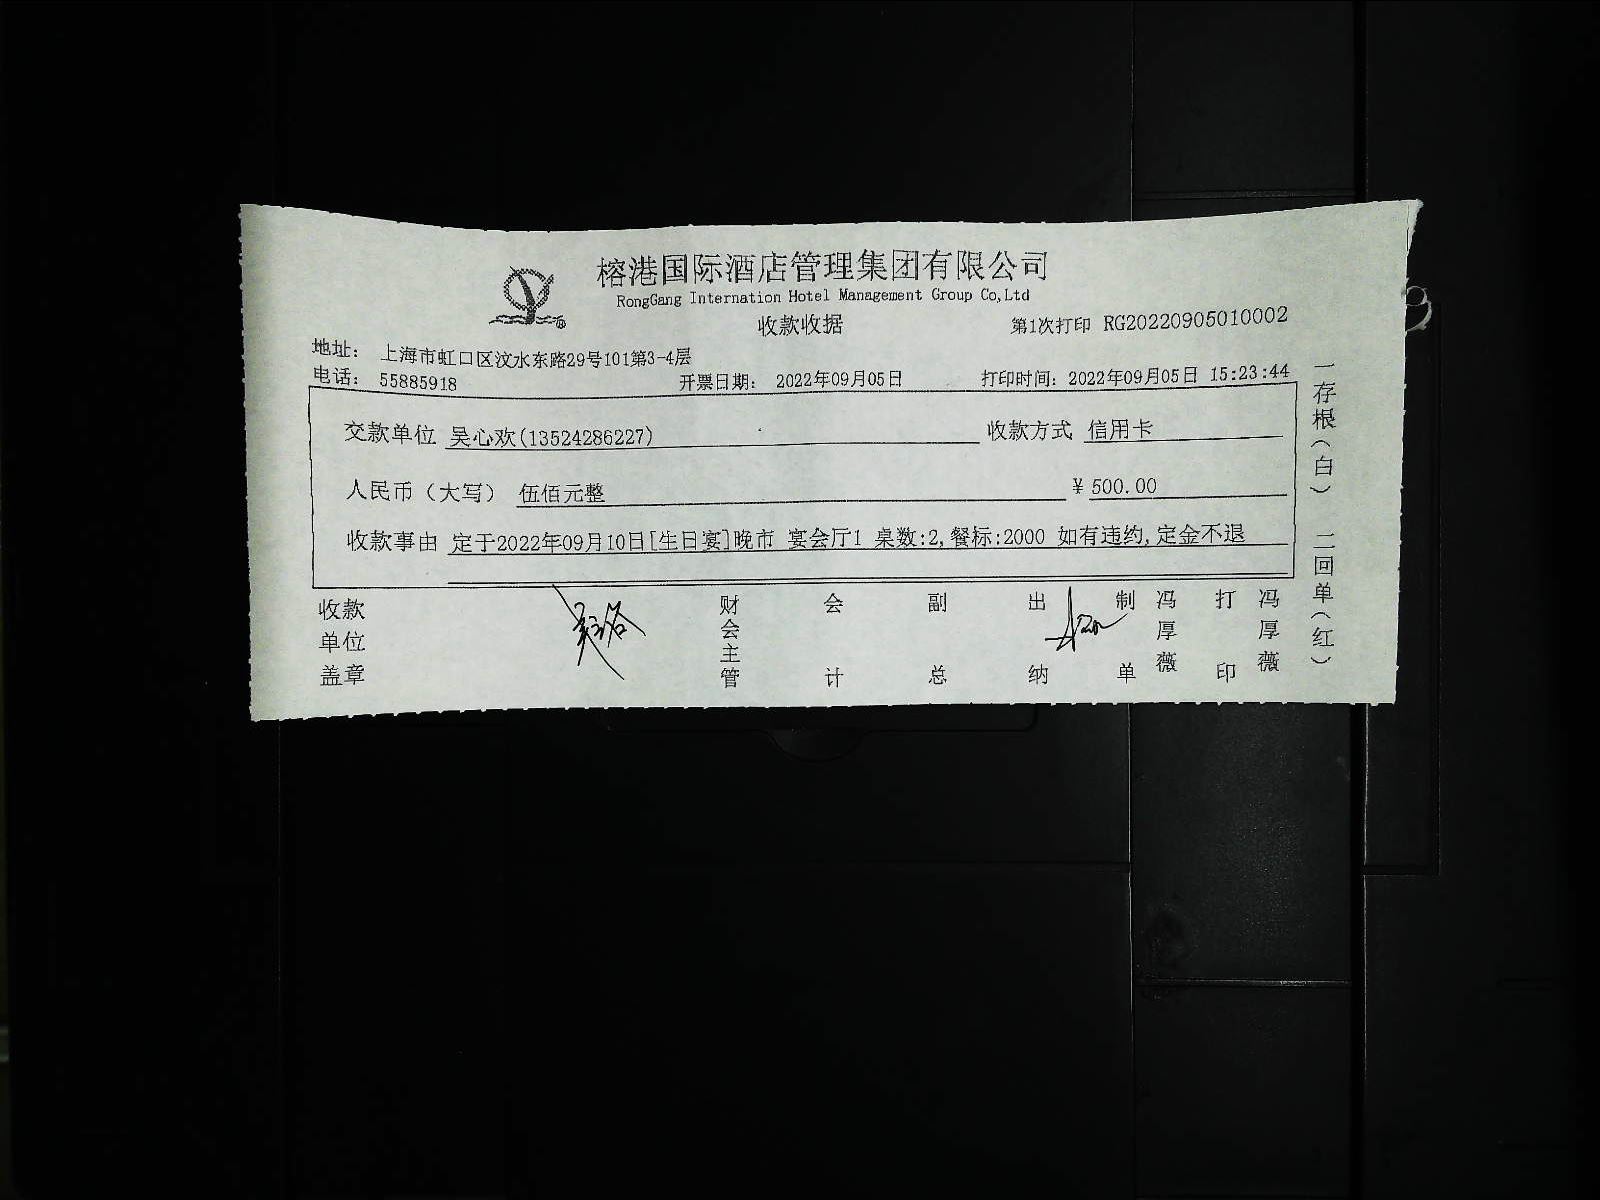 榕港国际酒店管理集团有限公司
RongGang Internation Hotel Management Group Co,Ltd
收款收据
第1次打印 RG20220905010002
地址: 上海市虹口区汶水东路29号101第3-4层
电话: 55885918 开票日期: 2022年09月05日 打印时间: 2022年09月05日 15:23:44
交款单位 吴心欢(13524286227) 收款方式 信用卡
人民币(大写) 伍佰元整 ¥ 500.00
收款事由 定于2022年09月10日[生日宴]晚市 宴会厅1 桌数:2,餐标:2000 如有违约,定金不退
收款单位盖章
财会主管
会计
副总
出纳
制单 冯厚薇
打印 冯厚薇
一存根(白) 二回单(红)